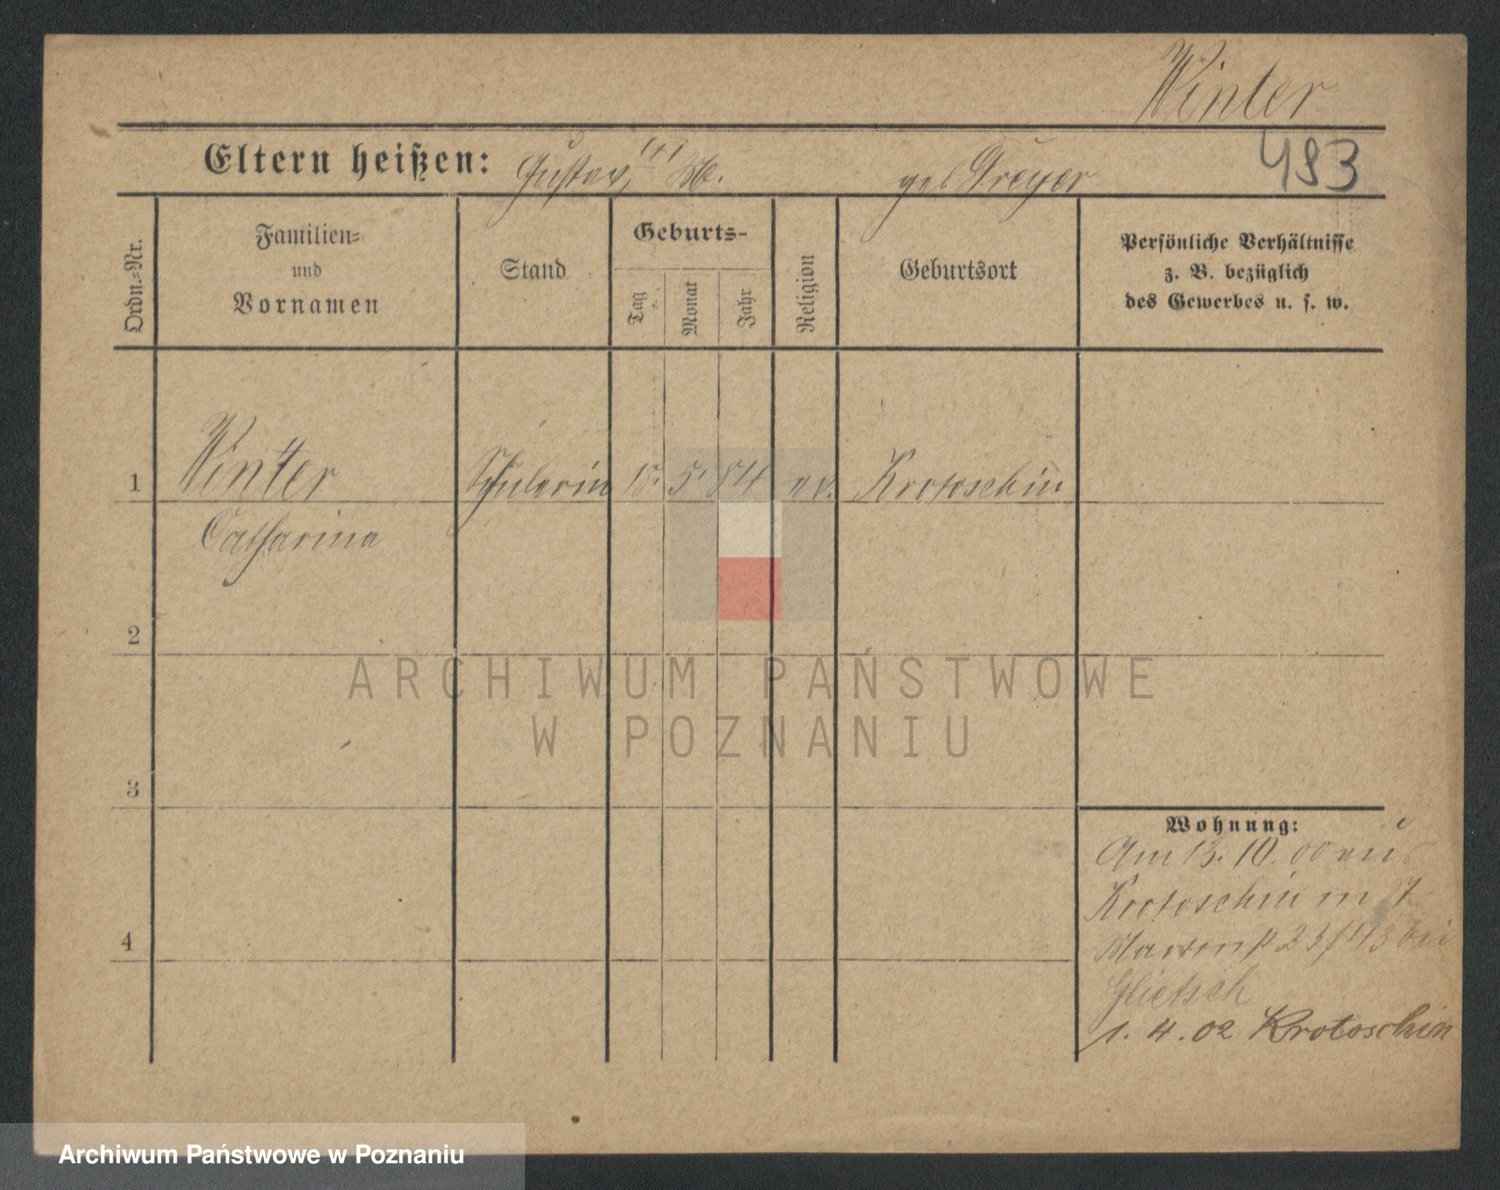 Winter
493
Eltern heißen: Gustav, geb Dreyer
Ordn.=Nr.
Familien=
und
Vornamen
Stand
Geburts-
Tag
Monat
Jahr
Religion
Geburtsort
Persönliche Verhältnisse
z. B. bezüglich
des Gewerbes u. s. w.
1 Winter Schülerin 5 84 ev. Krotoschin
Catharina
2
3
4
Wohnung:
Am 13. 10. 00 aus
Krotoschin
23/43 bei
Glietsch
1. 4. 02 Krotoschin
ARCHIWUM PAŃSTWOWE
W POZNANIU
Archiwum Państwowe w Poznaniu